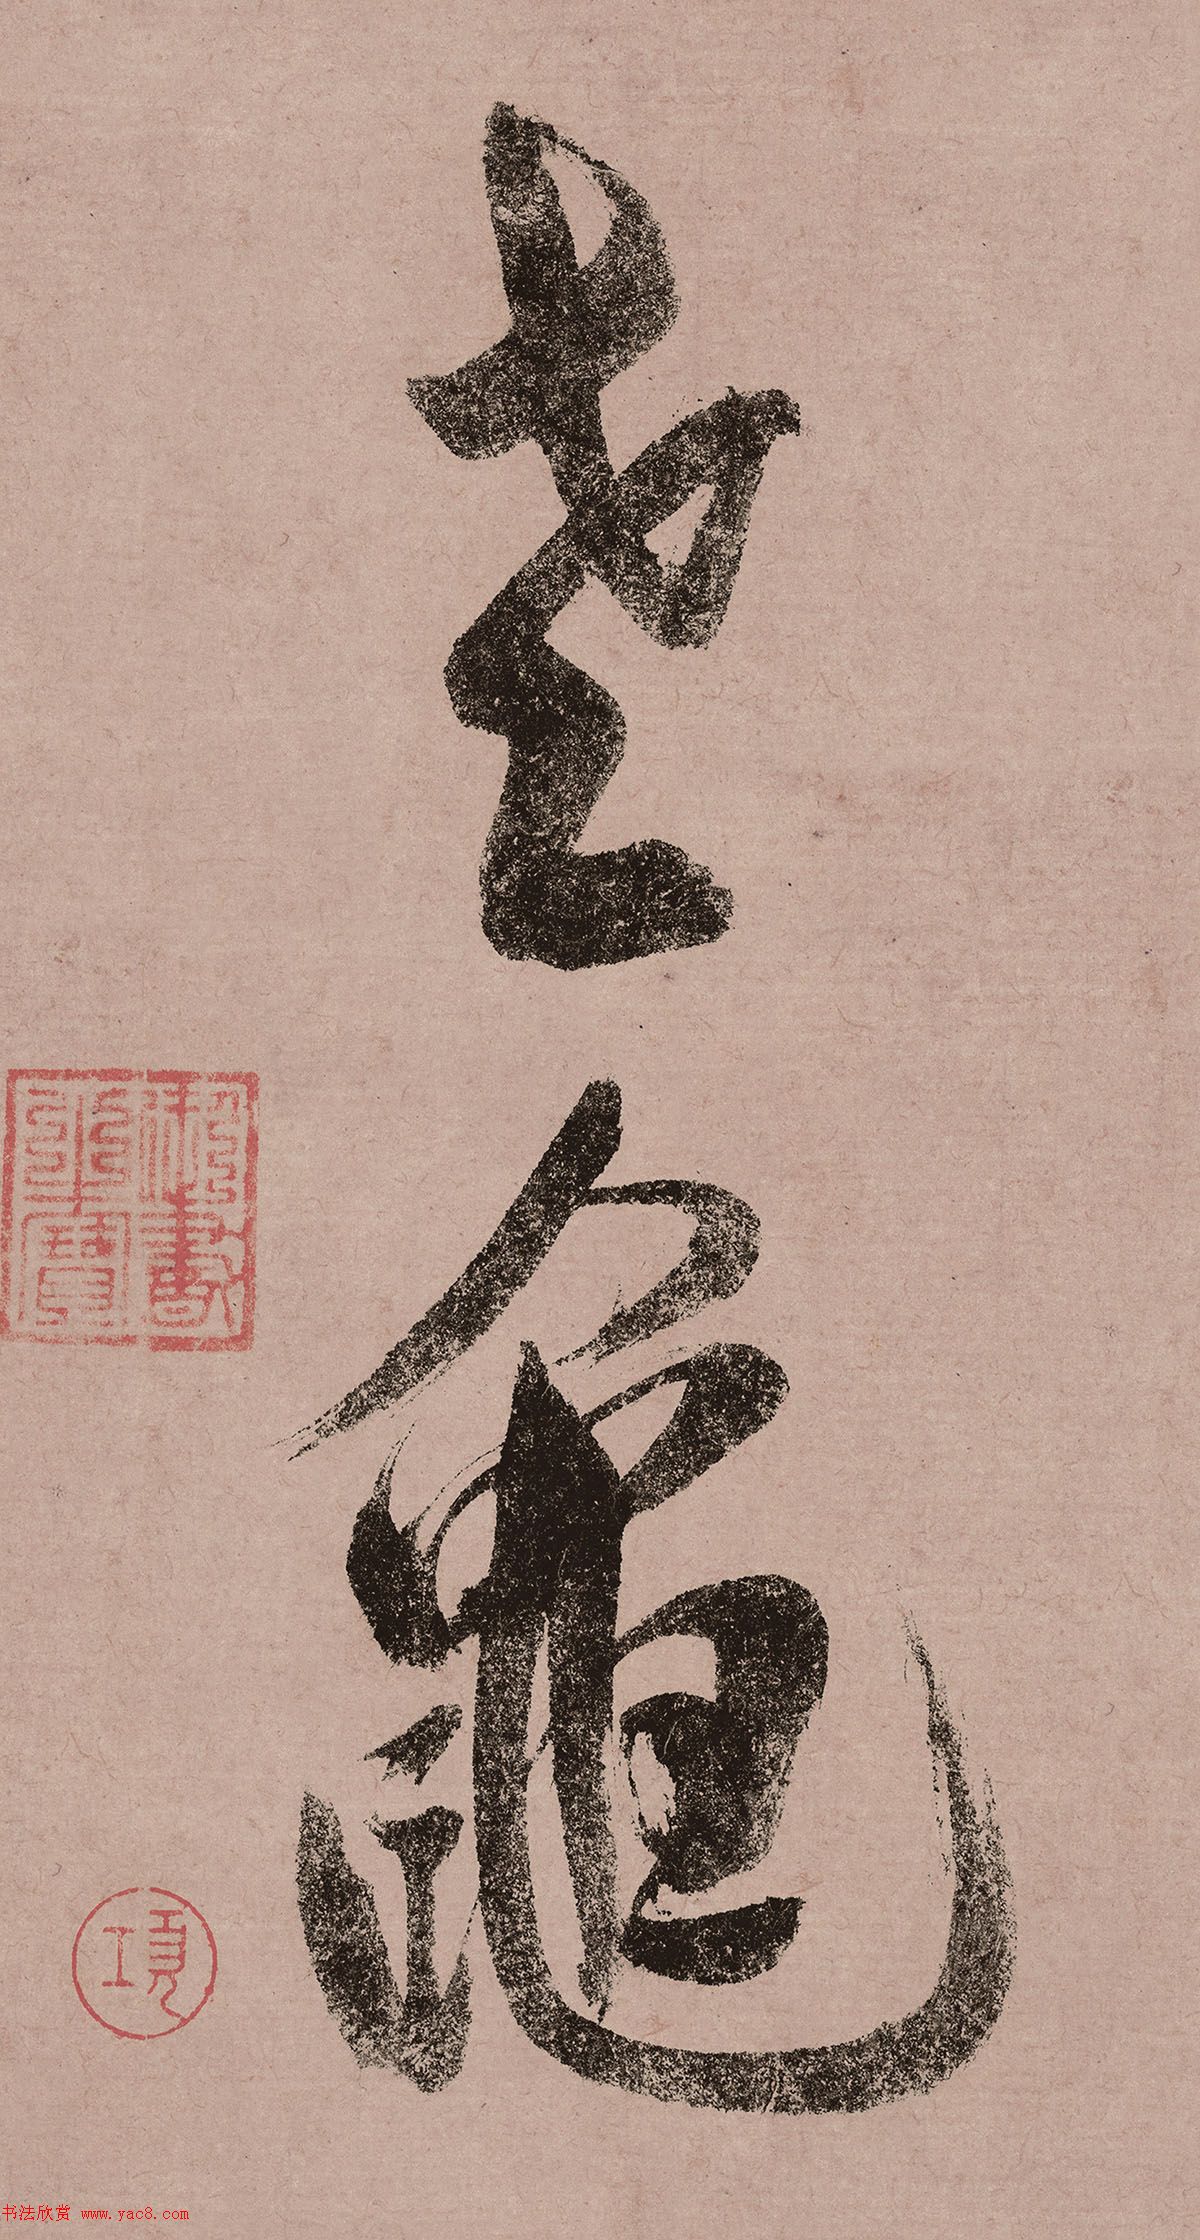 老
龜
項
书法欣赏 www.yac8.com